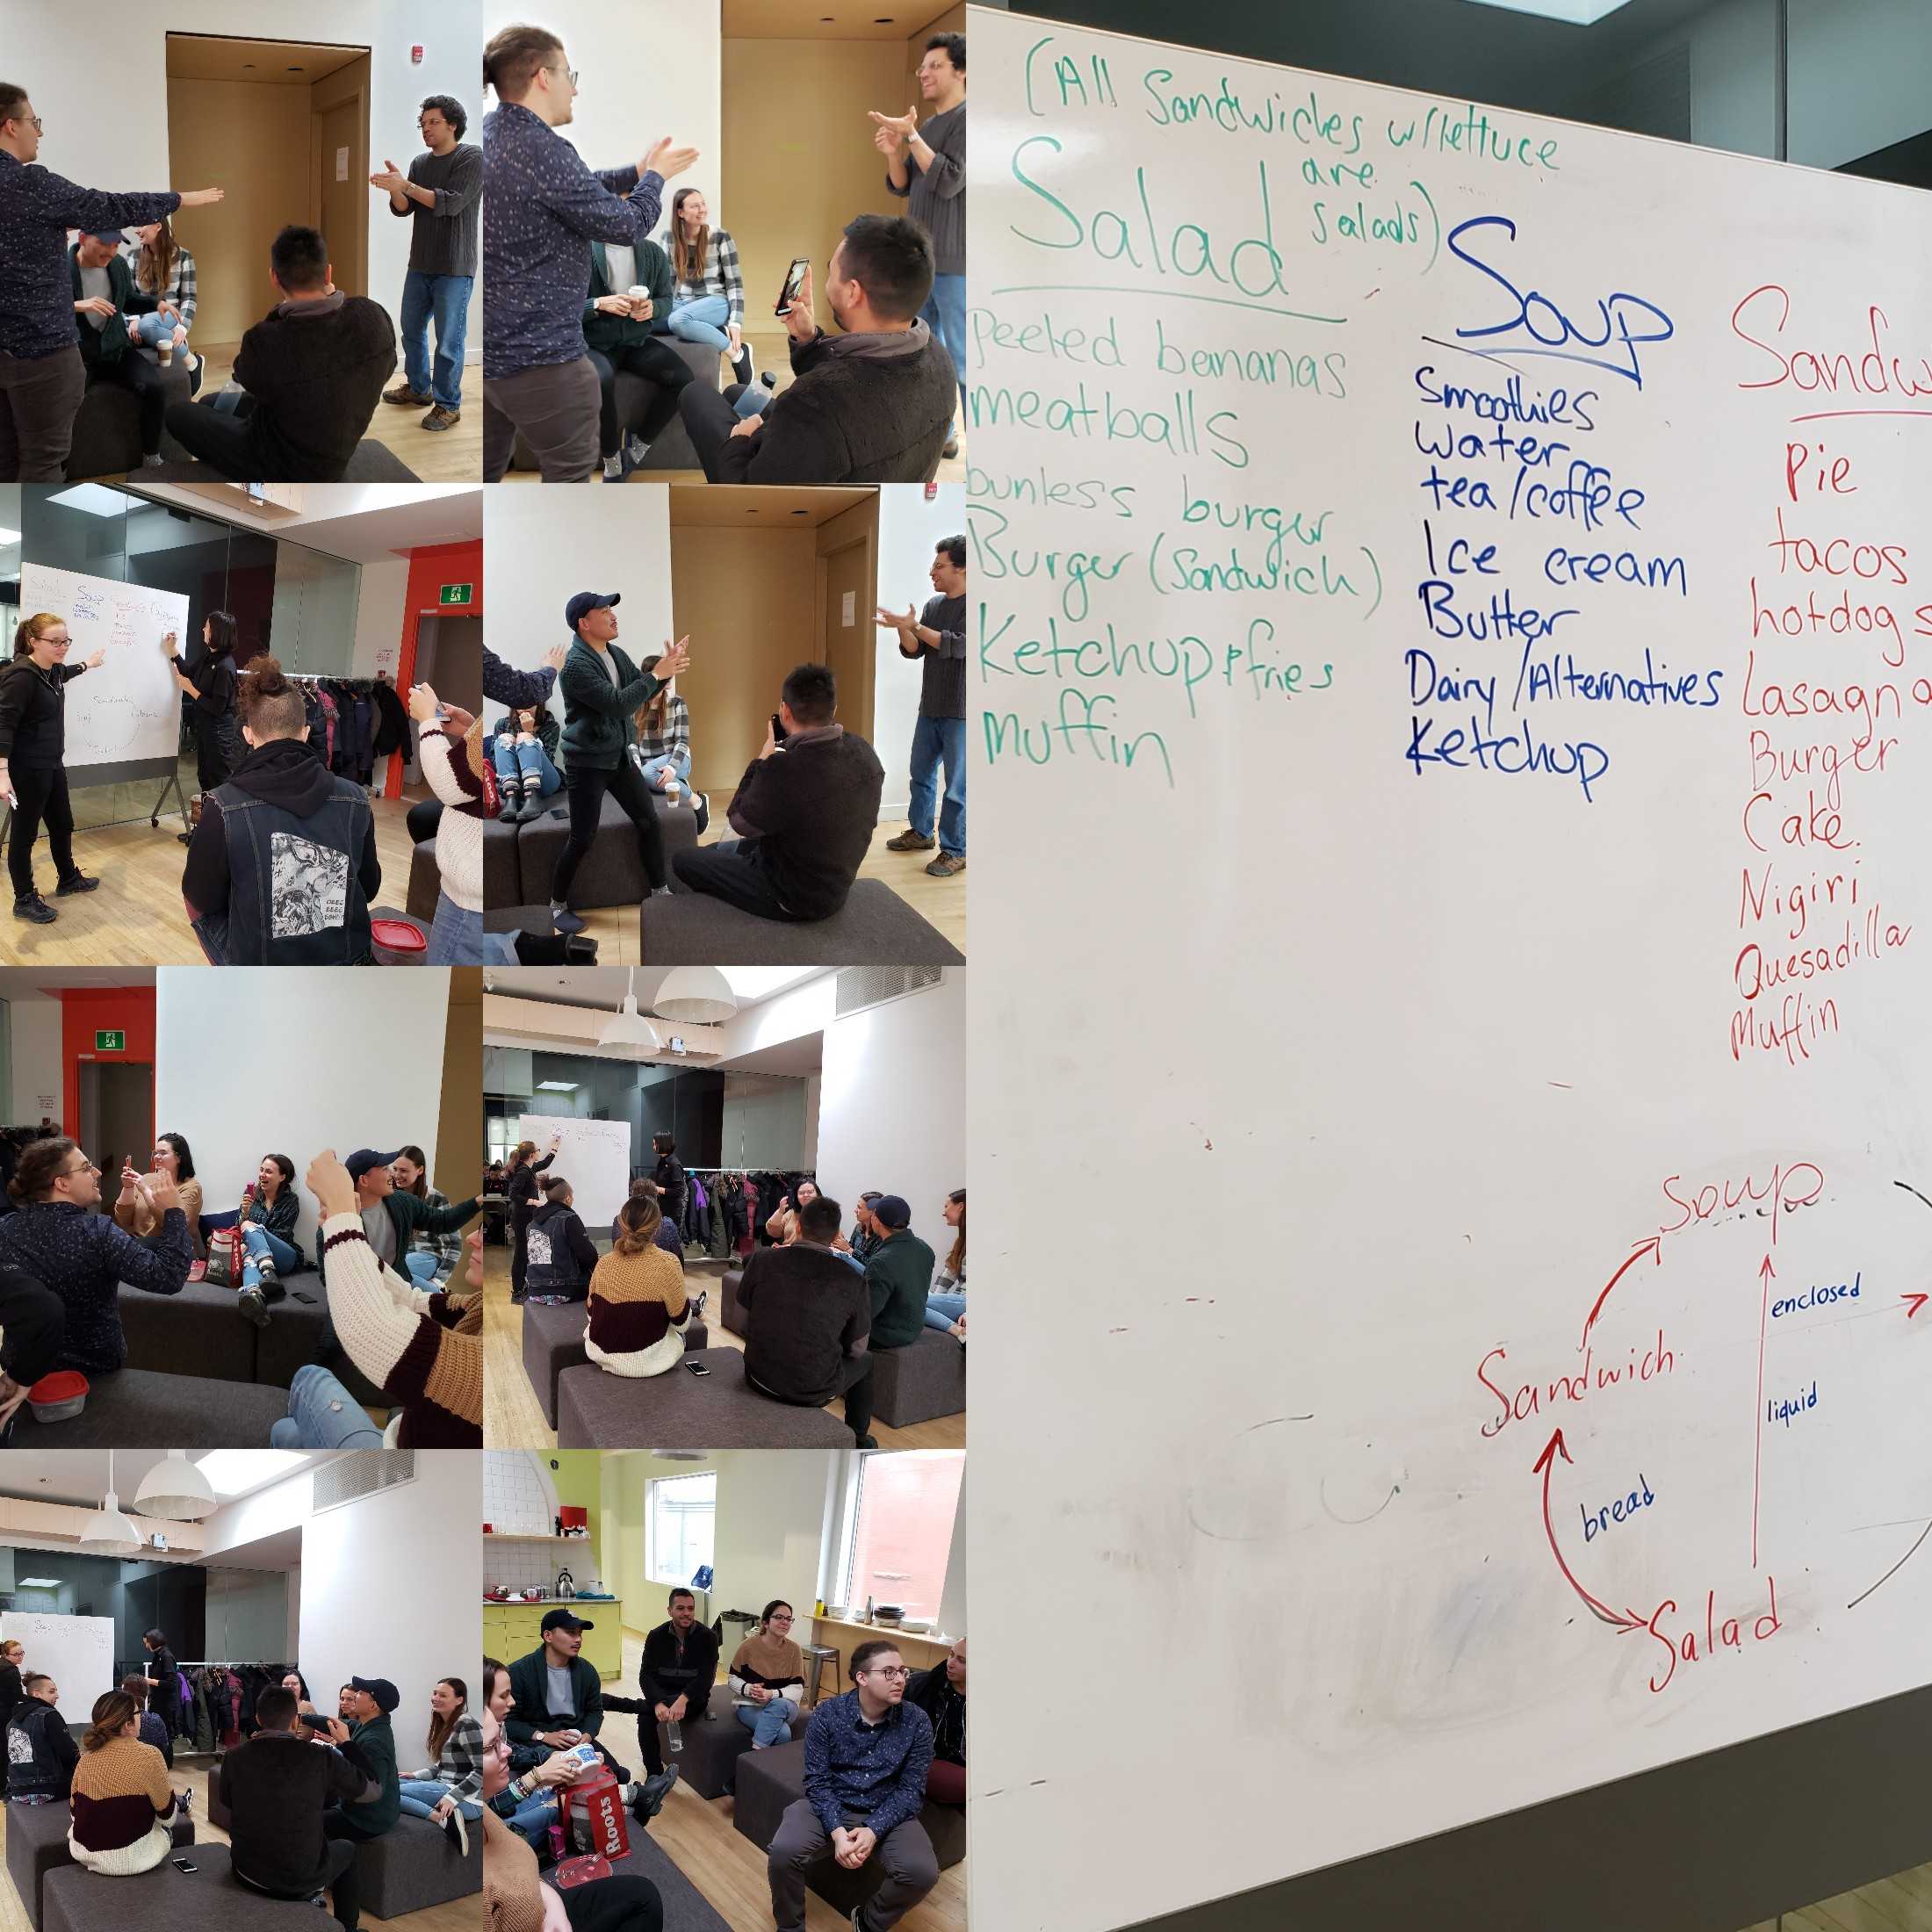 (All Sandwiches w/lettuce
are
salads)
Salad
peeled bananas
meatballs
bunless burger
Burger (Sandwich)
Ketchup & fries
muffin
Soup
Smoothies
Water
tea/coffee
Ice cream
Butter
Dairy/Alternatives
Ketchup
Sandw
Pie
tacos
hotdogs
Lasagna
Burger
Cake.
Nigiri
Quesadilla
Muffin
Soup
enclosed
Sandwich
liquid
bread
Salad
Salad
Soup
Sandwich
Salad
Roots